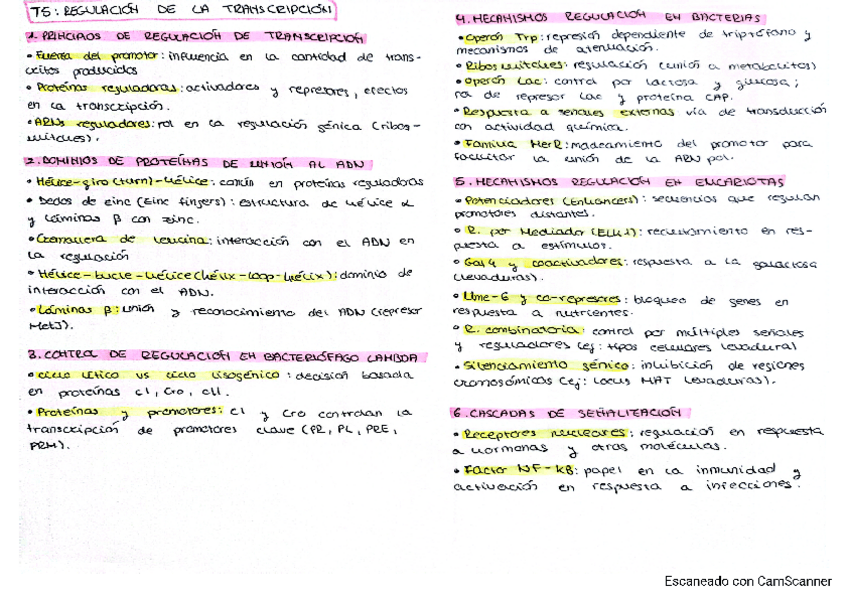 T5: REGULACIÓN DE LA TRANSCRIPCIÓN
1. PRINCIPIOS DE REGULACIÓN DE TRANSCRIPCIÓN
• Fuerza del promotor: influencia en la cantidad de trans-
critos producidos
• Proteínas reguladoras: activadores y represores, efectos
en la transcripción.
• ARNs reguladores: rol en la regulación génica (ribos-
witches).
2. DOMINIOS DE PROTEÍNAS DE UNIÓN AL ADN
• Hélice-giro (turn)-hélice: común en proteínas reguladoras
• Dedos de zinc (zinc fingers): estructura de hélice α
y láminas β con zinc.
• Cremallera de leucina: interacción con el ADN en
la regulación
• Hélice-bucle-hélice (hélix-loop-hélix): dominio de
interacción con el ADN.
• Láminas β: unión y reconocimiento del ADN (represor
MetJ).
3. CONTROL DE REGULACIÓN EN BACTERIÓFAGO LAMBDA
• ciclo lítico vs ciclo lisogénico: decisión basada
en proteínas cI, Cro, cII.
• Proteínas y promotores: cI y Cro controlan la
transcripción de promotores clave (PR, PL, PRE,
PRM).
4. MECANISMOS REGULACIÓN EN BACTERIAS
• Operón Trp: represión dependiente de triptófano y
mecanismos de atenuación.
• Riboswitches: regulación (unión a metabolitos)
• Operón Lac: control por lactosa y glucosa;
rol de represor Lac y proteína CAP.
• Respuesta a señales externas vía de transducción
con actividad química.
• Familia MerR: moldeamiento del promotor para
facilitar la unión de la ARN pol.
5. MECANISMOS REGULACIÓN EN EUCARIOTAS
• Potenciadores (Enhancers): secuencias que regulan
promotores distantes.
• R. por Mediador (ELK1): reclutamiento en res-
puesta a estímulos.
• Gal4 y coactivadores: respuesta a la galactosa
(levaduras).
• Ume-6 y co-represores: bloqueo de genes en
respuesta a nutrientes.
• R. combinatoria: control por múltiples señales
y reguladores (ej: tipos celulares levadura)
• Silenciamiento génico: inhibición de regiones
cromosómicas (ej: Locus MAT levaduras).
6. CASCADAS DE SEÑALIZACIÓN
• Receptores nucleares: regulación en respuesta
a hormonas y otras moléculas.
• Factor NF-kB: papel en la inmunidad y
activación en respuesta a infecciones.
Escaneado con CamScanner